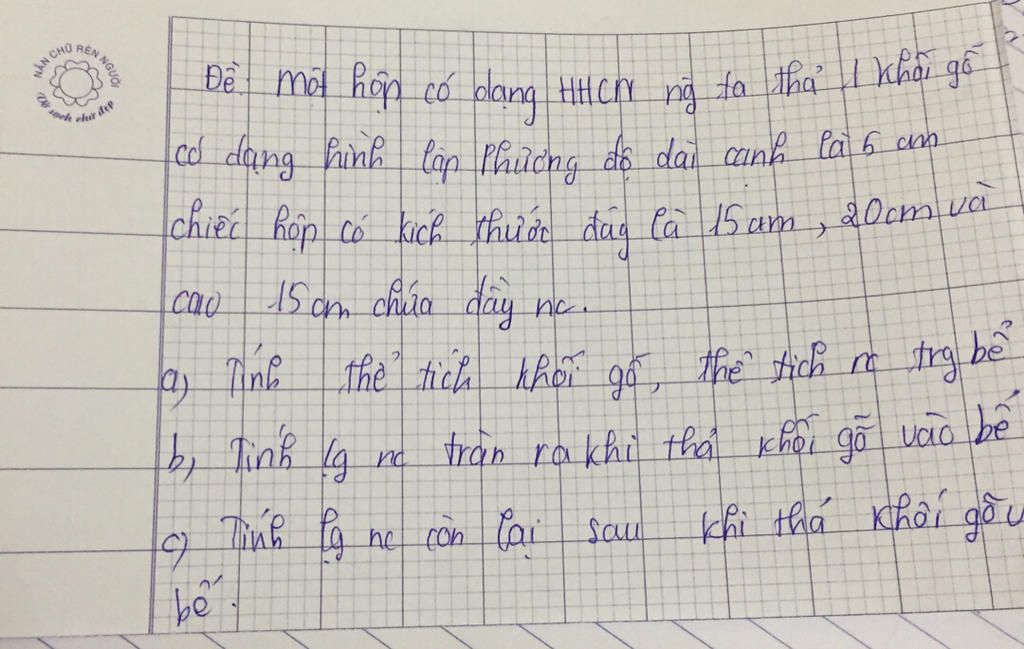 NẮN CHỮ RÈN NGƯỜI
Vở sạch chữ đẹp
Đề: một hộp có dạng HHCN ng ta thả 1 khối gỗ
có dạng hình lập phương độ dài cạnh là 5 cm
chiếc hộp có kích thước đáy là 15cm, 20cm và
cao 15cm chứa đầy nc.
a) Tính thể tích khối gỗ, thể tích nc trg bể
b) Tính lg nc tràn ra khi thả khối gỗ vào bể
c) Tính lg nc còn lại sau khi thả khối gỗ v
bể.